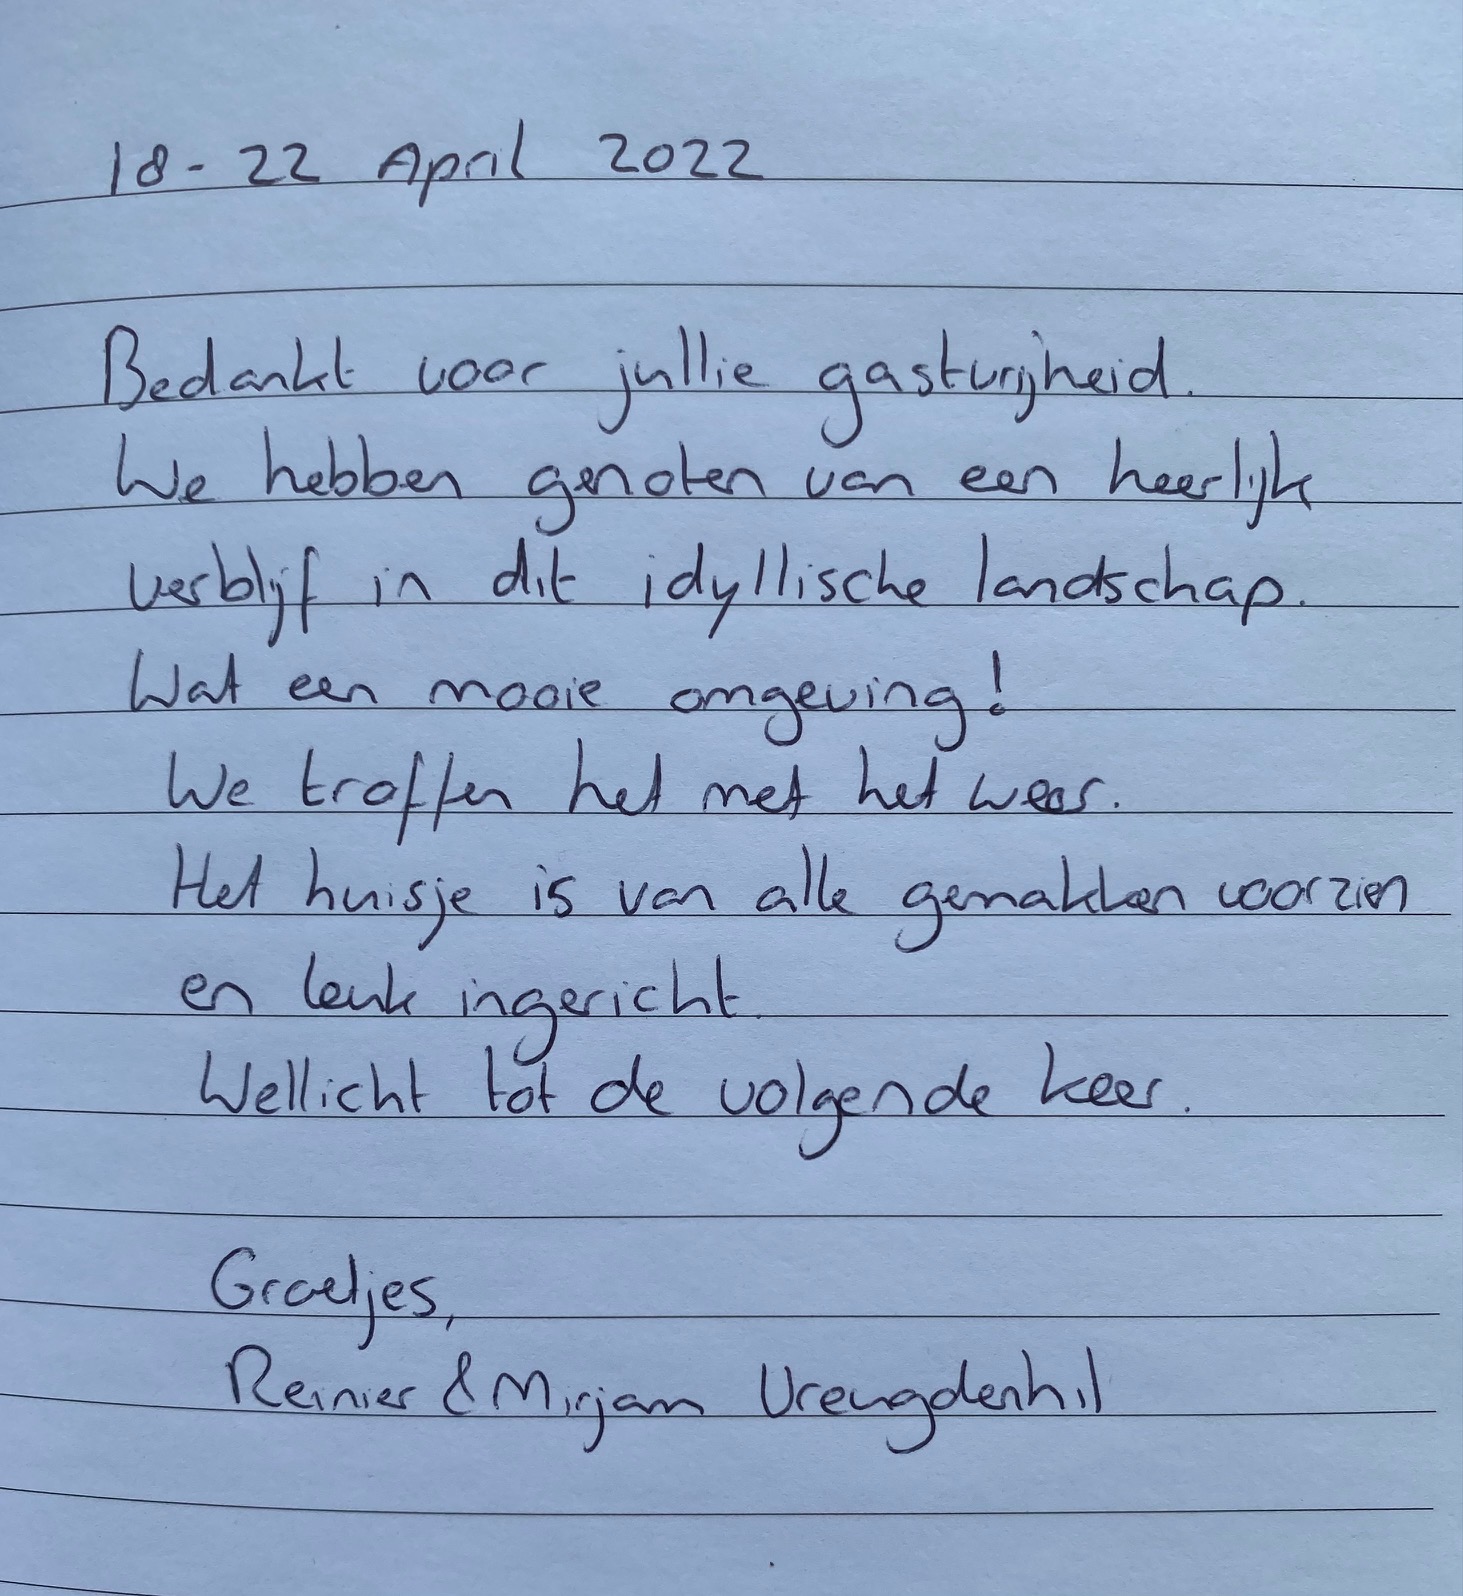 18 - 22 April 2022
Bedankt voor jullie gastvrijheid.
We hebben genoten van een heerlijk
verblijf in dit idyllische landschap.
Wat een mooie omgeving!
We troffen het met het weer.
Het huisje is van alle gemakken voorzien
en leuk ingericht.
Wellicht tot de volgende keer.
Groetjes,
Reinier & Mirjam Vreugdenhil